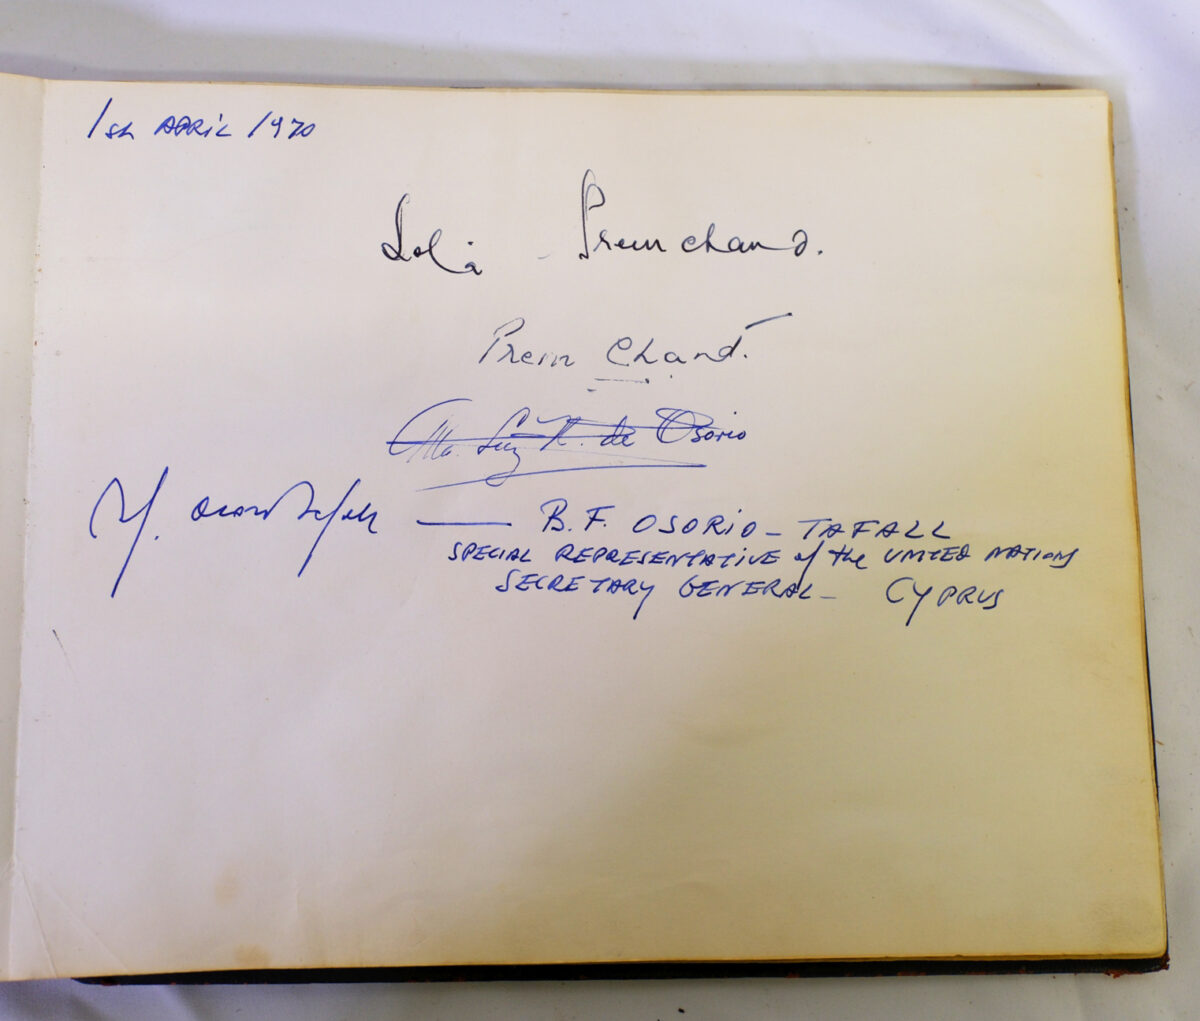 1st APRIL 1970
Lola - Premchand.
Prem Chand.
Ma. Luz R. de Osorio
B. F. OSORIO - TAFALL
SPECIAL REPRESENTATIVE of the UNITED NATIONS
SECRETARY GENERAL - CYPRUS